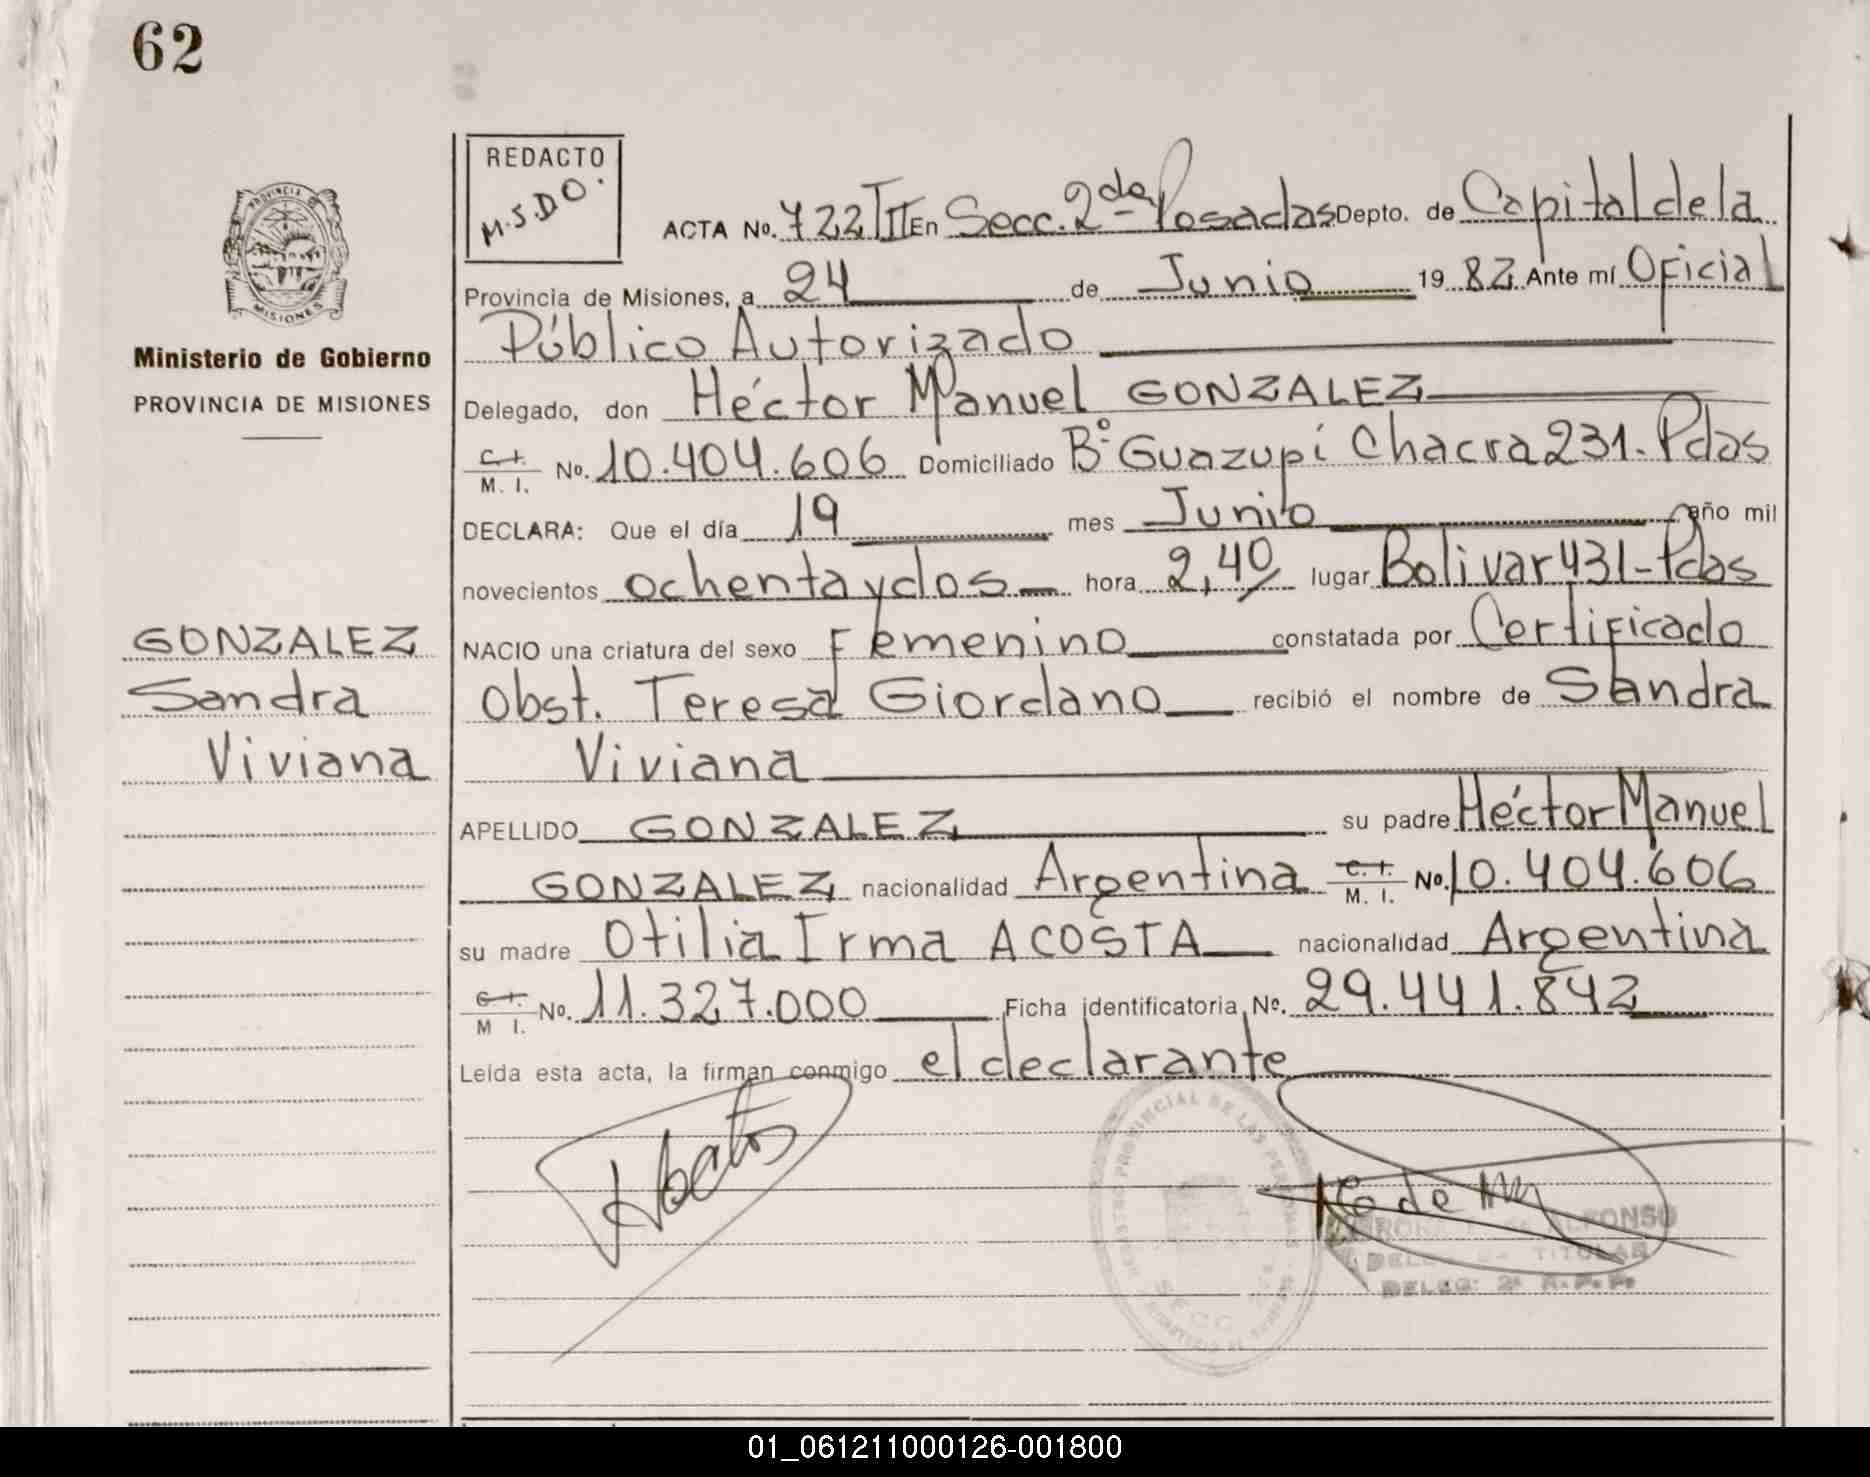 62
REDACTO
M.S.DO.
PROVINCIA DE
MISIONES
Ministerio de Gobierno
PROVINCIA DE MISIONES
GONZALEZ
Sandra
Viviana
ACTA No. 722/TII En Secc. 2da Posadas Depto. de Capital de la
Provincia de Misiones, a 24 de Junio 1982 Ante mí Oficial
Público Autorizado
Delegado, don Héctor Manuel GONZALEZ
C. I. / M. I. No. 10.404.606 Domiciliado Bº Guazupí Chacra 231. Pdas
DECLARA: Que el día 19 mes Junio año mil
novecientos ochenta y dos hora 2,40 lugar Bolivar 431-Pdas
NACIO una criatura del sexo Femenino constatada por Certificado
Obst. Teresa Giordano recibió el nombre de Sandra
Viviana
APELLIDO GONZALEZ su padre Héctor Manuel
GONZALEZ nacionalidad Argentina C. I. / M. I. No. 10.404.606
su madre Otilia Irma ACOSTA nacionalidad Argentina
C. I. / M I. No. 11.327.000 Ficha identificatoria No. 29.441.842
Leída esta acta, la firman conmigo el declarante
REGISTRO PROVINCIAL DE LAS PERSONAS
SECC.
ALFONSO
TITULAR
DELEG: 2ª R.P.P.
01_061211000126-001800